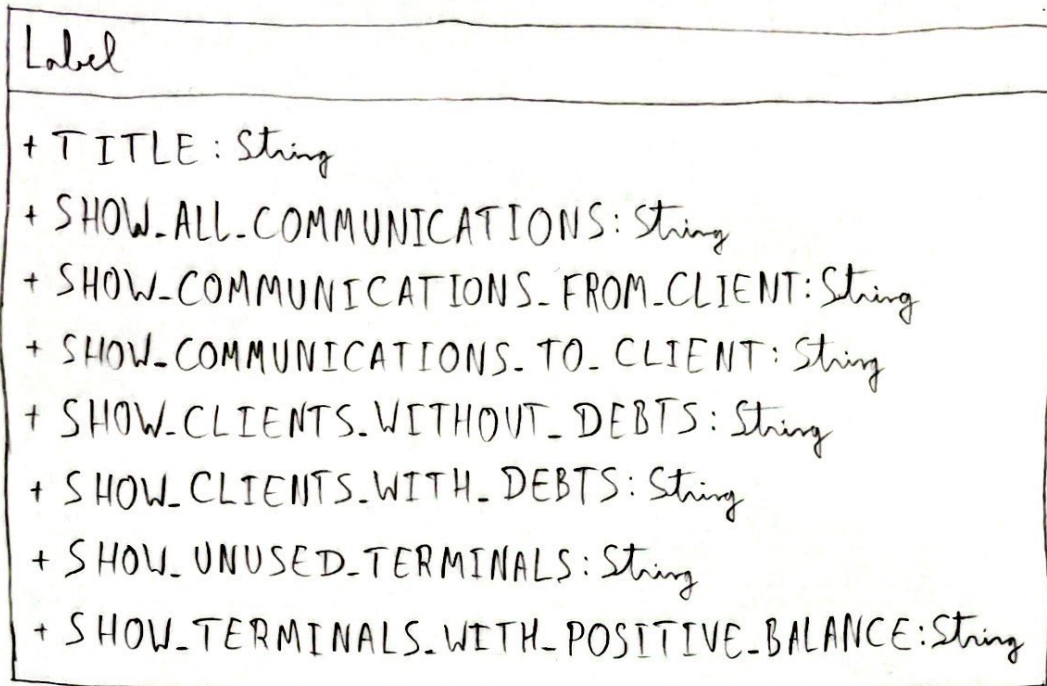 Label
+ TITLE: String
+ SHOW_ALL_COMMUNICATIONS: String
+ SHOW_COMMUNICATIONS_FROM_CLIENT: String
+ SHOW_COMMUNICATIONS_TO_CLIENT: String
+ SHOW_CLIENTS_WITHOUT_DEBTS: String
+ SHOW_CLIENTS_WITH_DEBTS: String
+ SHOW_UNUSED_TERMINALS: String
+ SHOW_TERMINALS_WITH_POSITIVE_BALANCE: String